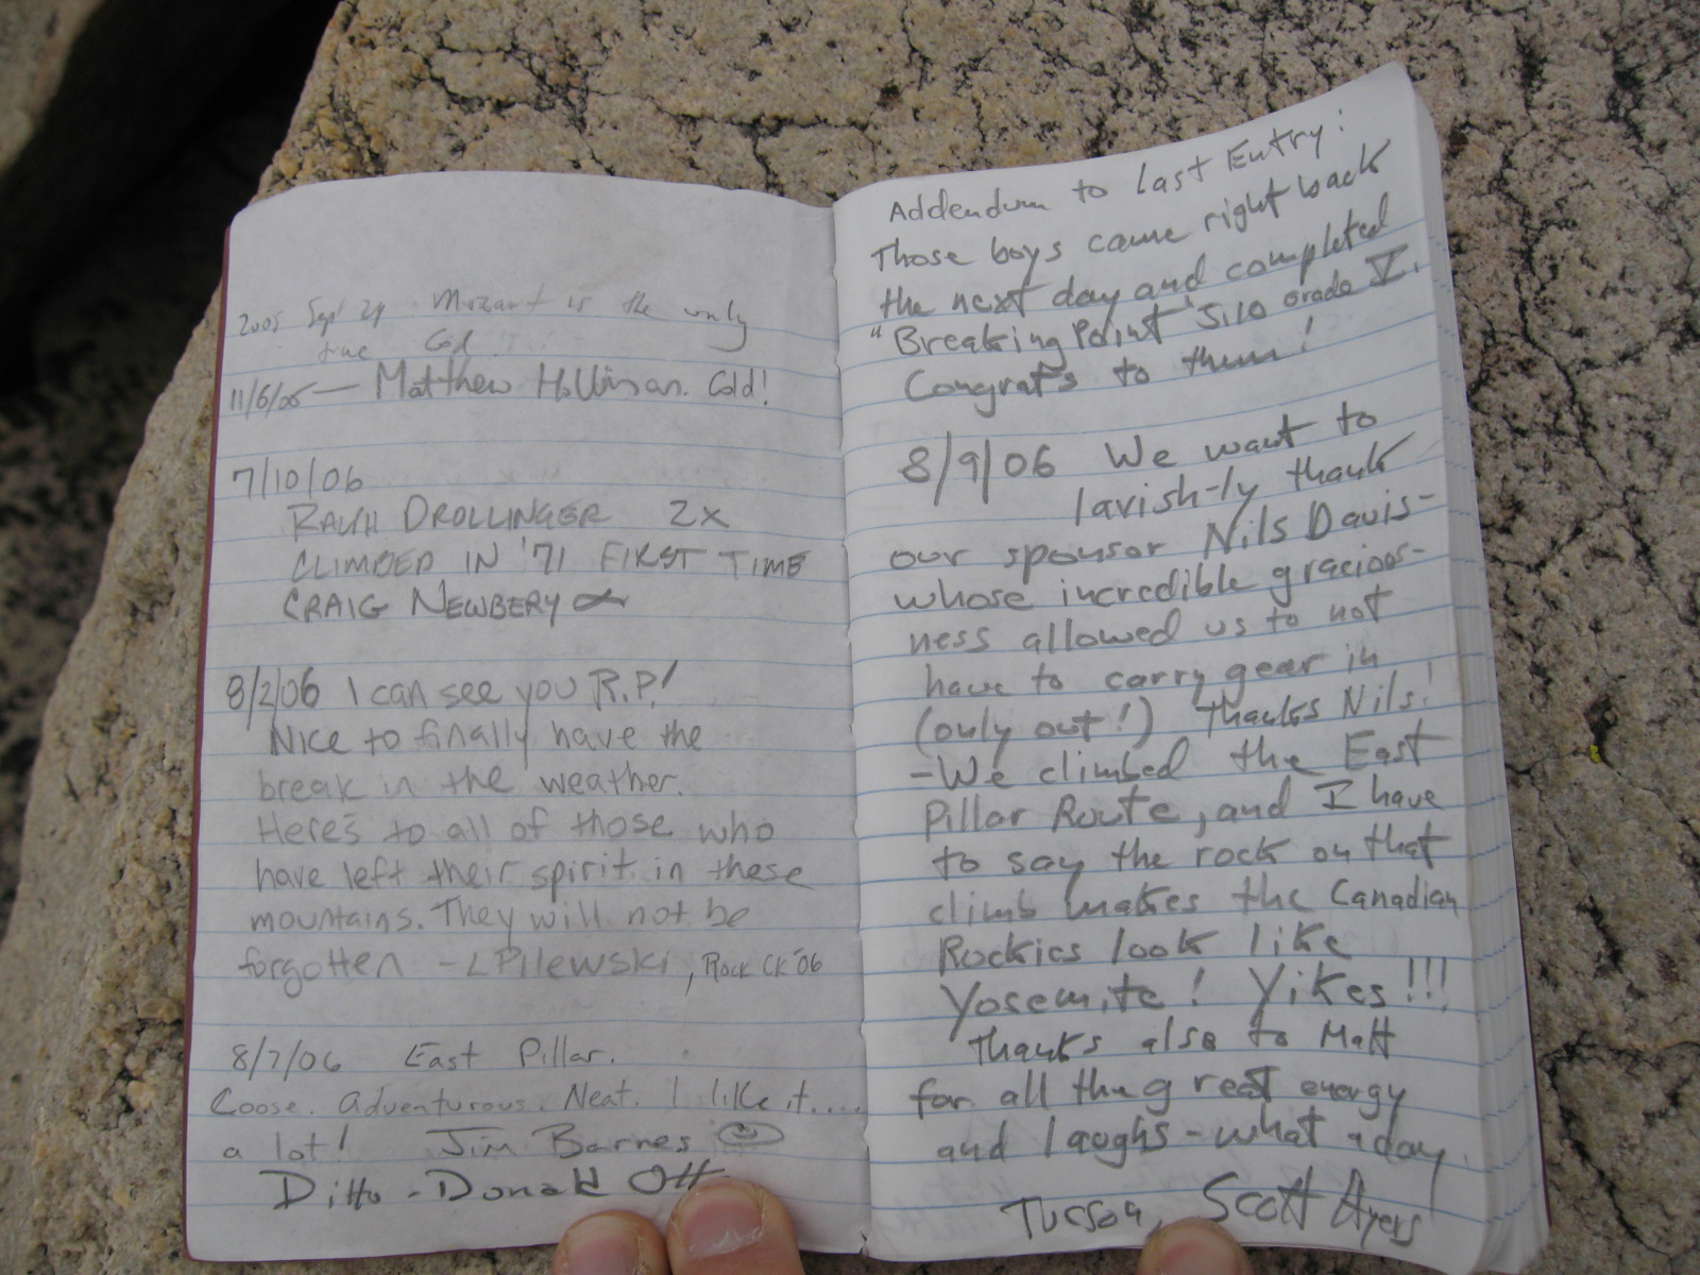 2005 Sept 29 Mozart is the only
true God
11/6/05 — Matthew Hollinsan. Cold!
7/10/06
RALPH DROLLINGER 2X
CLIMBED IN '71 FIRST TIME
CRAIG NEWBERY
8/2/06 I can see you R.P.!
NICE to finally have the
break in the weather.
Here's to all of those who
have left their spirit in these
mountains. They will not be
forgotten - L PILEWSKI, ROCK CK '06
8/7/06 East Pillar.
Loose. Adventurous. Neat. I like it....
a lot! Jim Barnes
Ditto - Donald Ott
Addendum to Last Entry:
Those boys came right back
the next day and completed
"Breaking Point" 5.10 Grade V.
Congrats to them!
8/9/06 We want to
lavish-ly thank
our sponsor Nils Davis-
whose incredible gracious-
ness allowed us to not
have to carry gear in
(only out!) Thanks Nils!
-We climbed the East
Pillar Route, and I have
to say the rock on that
climb makes the Canadian
Rockies look like
Yosemite! Yikes!!!
Thanks also to Matt
for all the great energy
and laughs - what a day.
Tucson, Scott Ayers